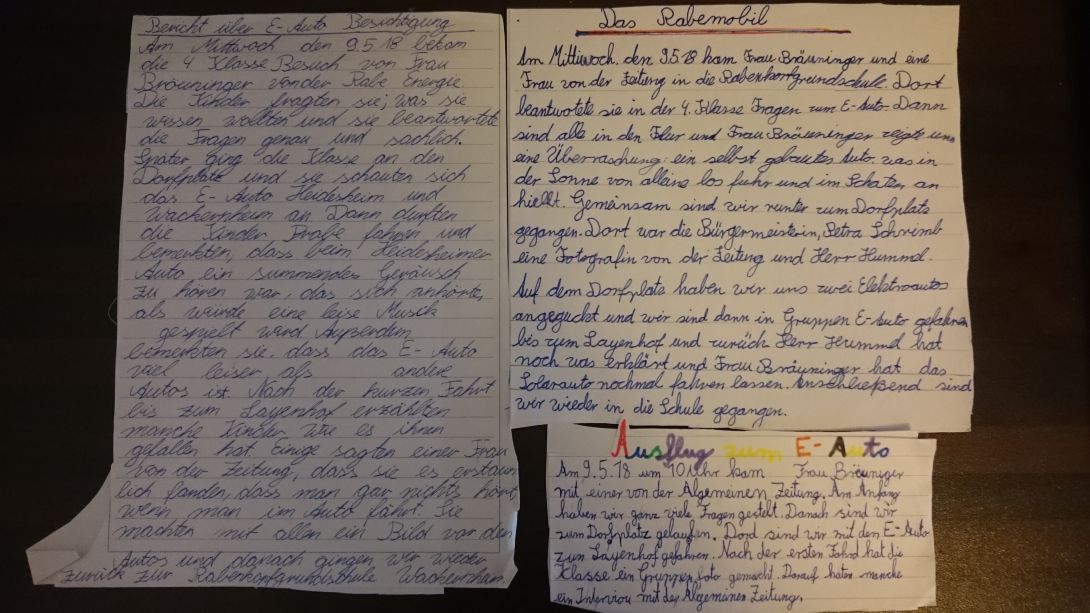 Bericht über E-Auto Besichtigung
Am Mittwoch den 9.5.18 bekam
die 4 Klasse Besuch von Frau
Bräuninger von der Rabe Energie.
Die Kinder fragten sie, was sie
wissen wollten und sie beantwortete
die Fragen genau und sachlich.
Später ging die Klasse an den
Dorfplatz und sie schauten sich
das E-Auto Heidesheim und
Wachernheim an. Dann durften
die Kinder Probe fahren und
bemerkten, dass beim Heidesheimer
Auto ein summendes Geräusch
zu hören war, das sich anhörte,
als würde eine leise Musik
gespielt wird Außerdem
bemerkten sie, dass das E-Auto
viel leiser als andere
Autos ist. Nach der kurzen Fahrt
bis zum Layenhof erzählten
manche Kinder wie es ihnen
gefallen hat. Einige sagten einer Frau
von der Zeitung, dass sie es erstaun
lich fanden, dass man gar nichts hört
wenn man im Auto fährt. Sie
machten mit allen ein Bild vor den
Autos und danach gingen wir wieder
zurück zur Rabenkopfgrundschule Wachernheim
Das Rabemobil
Am Mittwoch, den 9.5.18 kam Frau Bräuninger und eine
Frau von der Zeitung in die Rabenkopfgrundschule. Dort
beantwortete sie in der 4. Klasse Fragen zum E-Auto. Dann
sind alle in den Flur und Frau Bräuninger zeigte uns
eine Überraschung: ein selbst gebautes Auto. was in
der Sonne von alleine los fuhr und im Schaten an
hiellt. Gemeinsam sind wir runter zum Dorfplatz
gegangen. Dort war die Bürgermeisterin, Petra
eine Fotografin von der Zeitung und Herr Hummel.
Auf dem Dorfplatz haben wir uns zwei Elektroautos
angeguckt und wir sind dann in Gruppen E-Auto gefahren
bis zum Layenhof und zurück. Herr Hummel hat
noch was erklärt und Frau Bräuninger hat das
Solarauto nochmal fahren lassen. Anschließend sind
wir wieder in die Schule gegangen.
Ausflug zum E-Auto
Am 9.5.18 um 10 Uhr kam Frau Bräuniger
mit einer von der Algemeinen Zeitung. Am Anfang
haben wir ganz viele Fragen gestelt. Danach sind wir
zum Dorfplatz gelaufen. Dord sind wir mit den E-Auto
zum Layenhof gefahren. Nach der ersten Fahrd hat die
Klasse ein Gruppen foto gemacht. Darauf haten manche
ein Interviou mit der Algemeinen Zeitung.